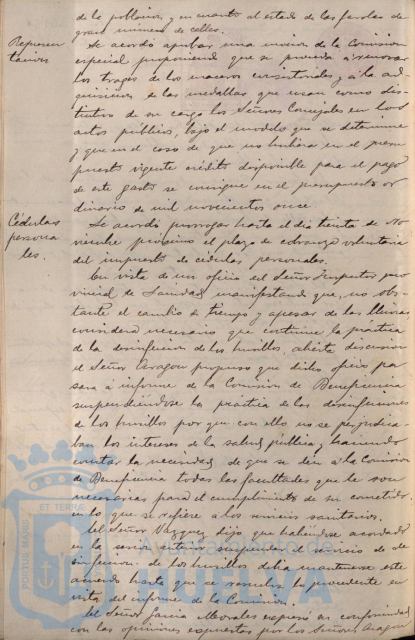 de la poblacion, y en cuanto al estado de las farolas de
gran numero de calles.
Represen
taciones
Se acordó aprobar una mocion de la Comision
especial proponiendo que se proceda a renovar
los trages de los maceros consistoriales y á la ad-
quisicion de las medallas que usan como dis-
tintivo de su cargo los Señores Concejales en los
actos publicos, bajo el modelo que se determine
y que en el caso de que no hubiera en el presu-
puesto vigente crédito disponible para el pago
de este gasto se consigne en el presupuesto or
dinario de mil novecientos once.
Cédulas
persona
les.
Se acordó prorrogar hasta el dia treinta de No
viembre proximo el plazo de cobranza voluntaria
del impuesto de cédulas personales.
En vista de un oficio del Señor Inspector pro
vincial de Sanidad manifestando que, no obs-
tante el cambio de tiempo y apesar de las lluvias
considera necesario que continue la practica
de la desinfeccion de los husillos, abierta discusion
el Señor Aragon propuso que dicho oficio pa
sara á informe de la Comision de Beneficencia
suspendiéndose la práctica de las desinfecciones
de los husillos por que con ello no se perjudica
ban los intereses de la salud publica, y haciendo
constar la necesidad de que se den á la Comision
de Beneficencia todas las facultades que le son
necesarias para el cumplimiento de su cometido
en lo que se refiere á los servicios sanitarios.
El Señor Vazquez dijo que habiéndose acordado
en la sesion anterior suspender el servicio de de
sinfeccion de los husillos debia mantenerse este
acuerdo hasta que se resuelva lo procedente en
vista del informe de la Comision.
El Señor Garcia Morales expresó su conformidad
con las opiniones expuestas por los Señores Aragon
PORTUS MARIS ET TERRAE
HUELVA